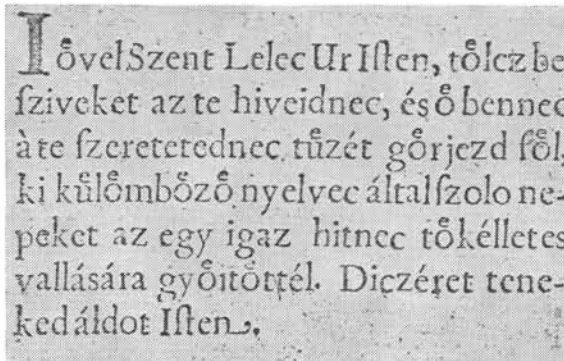 Ioͤvel Szent Lelec Ur Iſten, toͤlcz be
ſziveket az te hiveidnec, és oͤ bennec
à te ſzeretetednec tuͤzét goͤrjezd foͤl,
ki kuͤloͤmboͤzoͤ nyelvec által ſzolo ne-
peket az egy igaz hitnec toͤkélletes
vallására gyoͤitoͤttél. Diczéret tene-
ked áldot Iſten.